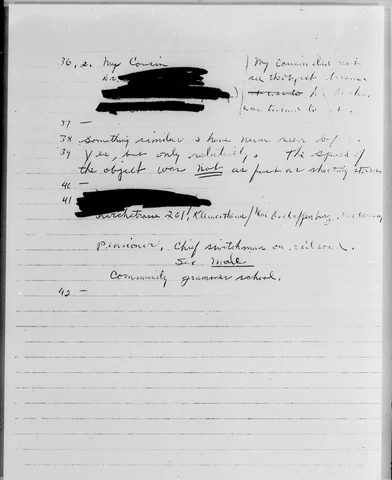 36, e. My Cousin
Dr.
(My cousin did not
see the object because
his back
was turned to it.
37 —
38 Something similar I have never seen before.
39 Yes, but only relatively. The speed of
the object was not as fast as shooting stars
40 —
41
Kirchstrasse 201, /
Pensioner, Chief switchman on railroad.
Sex Male
Community grammer school.
42 —